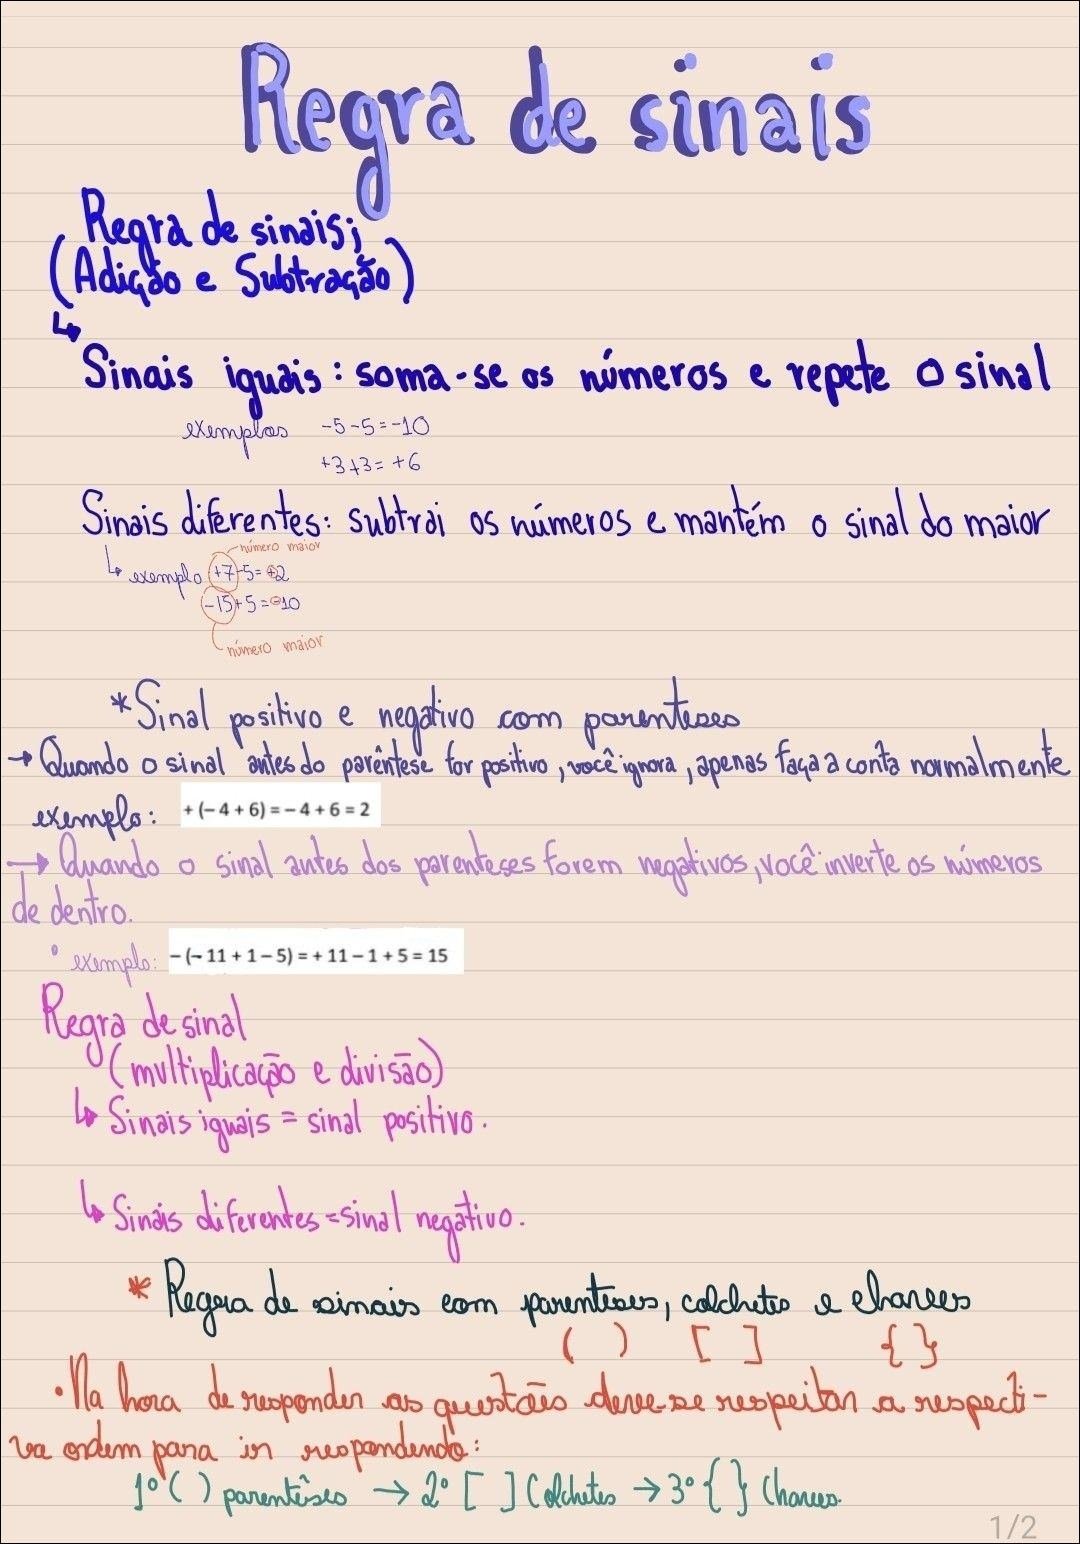 Regra de sinais
Regra de sinais;
(Adição e Subtração)
↳
Sinais iguais: soma-se os números e repete o sinal
exemplos -5-5=-10
+3+3=+6
Sinais diferentes: subtrai os números e mantém o sinal do maior
número maior
↳ exemplo +7-5=+2
-15+5=-10
número maior
*Sinal positivo e negativo com parenteses
→ Quando o sinal antes do parêntese for positivo, você ignora, apenas faça a conta normalmente
exemplo: + (– 4 + 6) = – 4 + 6 = 2
→ Quando o sinal antes dos parenteses forem negativos, você inverte os números
de dentro.
° exemplo: – (– 11 + 1 – 5) = + 11 – 1 + 5 = 15
Regra de sinal
(multiplicação e divisão)
↳ Sinais iguais = sinal positivo.
↳ Sinais diferentes = sinal negativo.
* Regra de sinais com parenteses, colchetes e chaves
( ) [ ] { }
• Na hora de responder as questões deve-se respeitar a respecti-
va ordem para ir respondendo:
1° ( ) parentêses → 2° [ ] Colchetes → 3° { } Chaves.
1/2